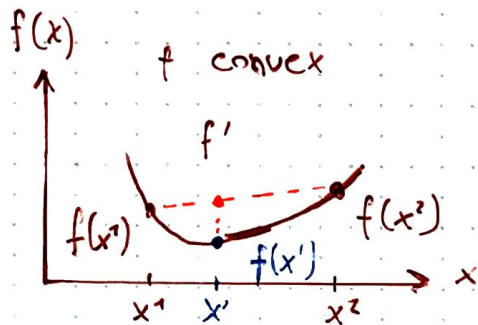 f(x)
f convex
f'
f(x¹)
f(x²)
f(x')
x
x¹ x' x²